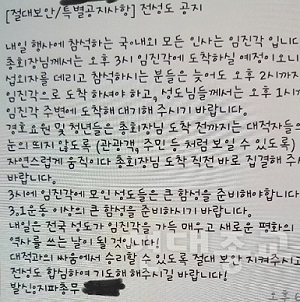 [절대보안/특별공지사항] 전성도 공지
내일 행사에 참석하는 국내외 모든 인사는 임진각 입니다
총회장님께서는 오후 3시 임진각에 도착하실 예정이오니
섭외자를 데리고 참석하시는 분들은 늦어도 오후 2시까지
임진각으로 도착 하셔야 하고, 성도님들께서는 오후 1시
임진각 주변에 도착해 대기해 주시기 바랍니다.
경호요원 및 청년들은 총회장님 도착 전까지는 대적자들
눈의 띄지 않도록 (관광객, 주민 등 처럼 보일 수 있도록)
자연스럽게 움직이다 총회장님 도착 직전 바로 집결해 주시
바랍니다.
3시에 임진각에 모인 성도들은 큰 함성을 준비해야합니다
3.1운동 이상의 큰 함성을 준비하시기 바랍니다.
내일은 전국 성도가 임진각을 가득 매우고 새로운 평화의
역사를 쓰는 날이 될 것입니다.
대적과의 싸움에서 승리할 수 있도록 절대 보안 지켜주시고
전성도 합심하여 기도해 해주시길 바랍니다!
발신:지파총무
오후
대종교